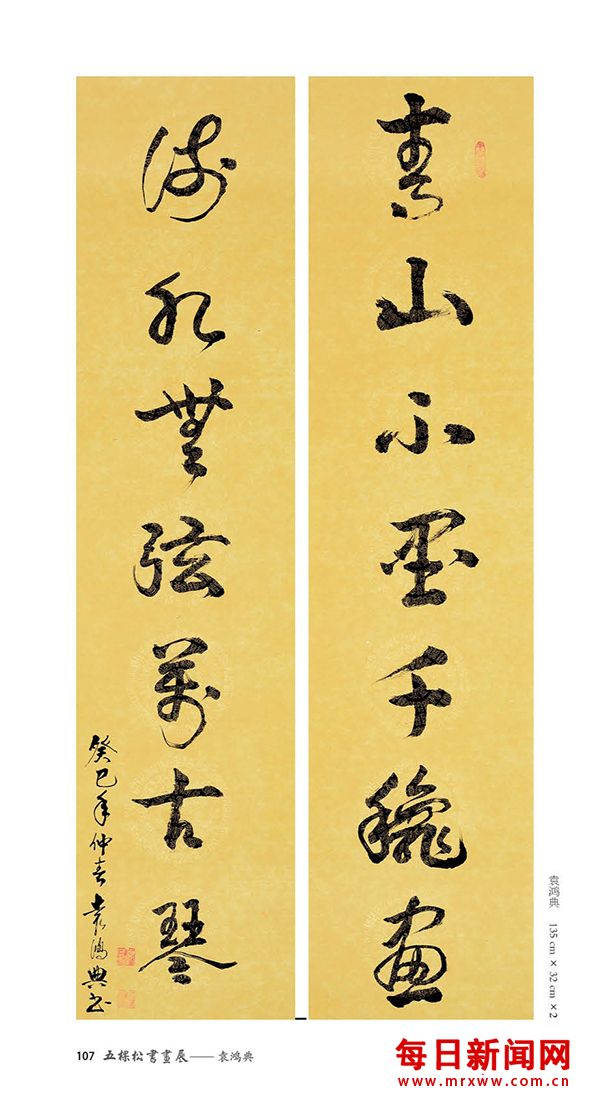 青山不墨千龝畫
流水無弦萬古琴
癸巳年仲春袁鴻典书
袁鸿典 135 cm × 32 cm × 2
107 五棵松書畫展——袁鸿典
每日新闻网
www.mrxww.com.cn